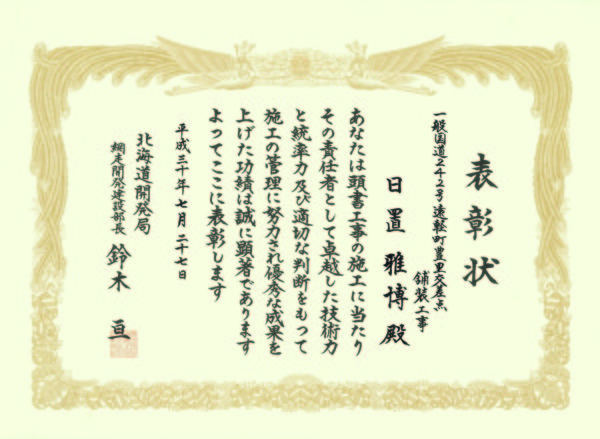 表彰状
一般国道242号遠軽町豊里交差点
舗装工事
日置雅博殿
あなたは頭書工事の施工に当たり
その責任者として卓越した技術力
と統率力及び適切な判断をもって
施工の管理に努力され優秀な成果を
上げた功績は誠に顕著であります
よってここに表彰します
平成三十年七月二十七日
北海道開発局
網走開発建設部長 鈴木亘